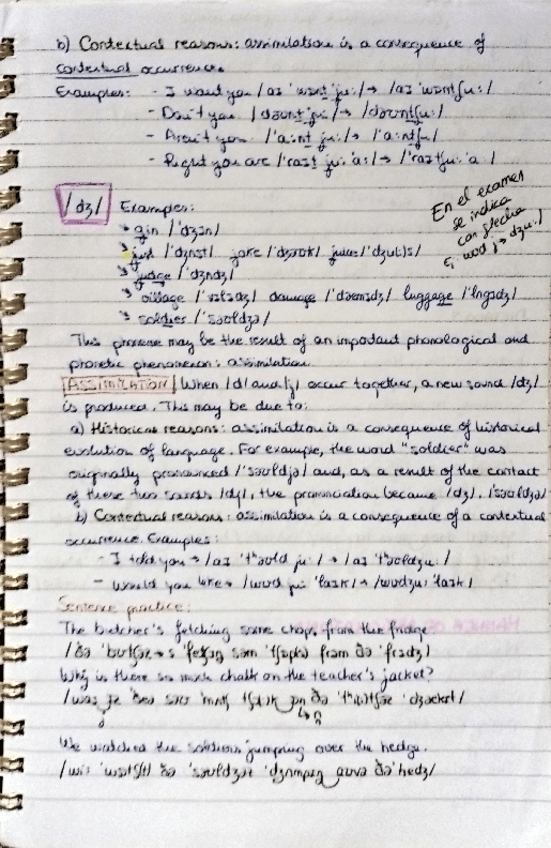 b) Contextual reasons: assimilation is a consequence of
contextual occurrence.
Examples: - I want you /aɪ 'wɒnt ju:/ → /aɪ 'wɒntʃu:/
- Don't you /dəʊnt ju:/ → /dəʊntʃu:/
- Aren't you /'a:nt ju:/ → /'a:ntʃu/
- Right you are /'raɪt ju: 'a:/ → /'raɪtʃu: 'a:/
/dʒ/ Examples:
En el examen
se indica
con flecha
gin /'dʒɪn/
just /'dʒʌst/ joke /'dʒəʊk/ juice /'dʒu:s/
judge /'dʒʌdʒ/
village /'vɪlɪdʒ/ damage /'dæmɪdʒ/ luggage /'lʌgɪdʒ/
soldier /'səʊldʒə/
This phoneme may be the result of an important phonological and
phonetic phenomenon: assimilation.
ASSIMILATION When /d/ and /j/ occur together, a new sound /dʒ/
is produced. This may be due to:
a) Historical reasons: assimilation is a consequence of historical
evolution of language. For example, the word "soldier" was
originally pronounced /'səʊldjə/ and, as a result of the contact
of these two sounds /dj/, the pronunciation became /dʒ/. /'səʊldʒə/
b) Contextual reasons: assimilation is a consequence of a contextual
occurrence. Examples:
- I told you → /aɪ 'tʰəʊld ju:/ → /aɪ 'tʰəʊldʒu:/
- Would you like → /wʊd ju: 'laɪk/ → /wʊdʒu: 'laɪk/
Sentence practice:
The butcher's fetching some chops from the fridge
Why is there so much chalk on the teacher's jacket?
We watched the soldiers jumping over the hedge.